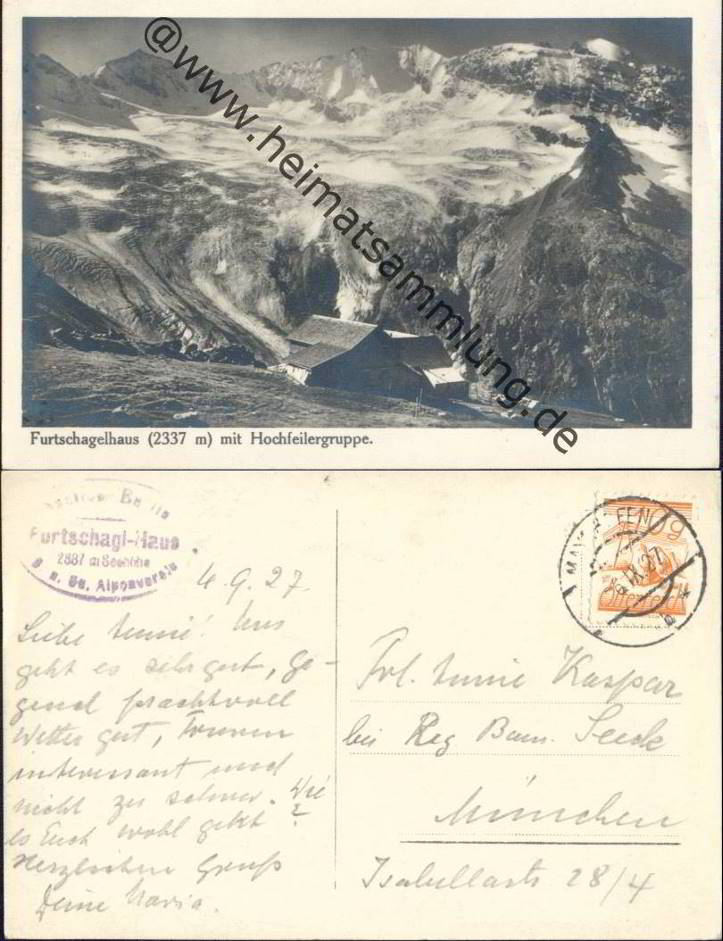 @www.heimatsammlung.de
Furtschagelhaus (2337 m) mit Hochfeilergruppe.
Furtschagl-Haus
2337 m Seehöhe
Alpenverein
4.9.27
Liebe Annie! Uns
geht es sehr gut, Ge-
gend prachtvoll
Wetter gut, Touren
interessant und
nicht zu schwer. Wie
es Euch wohl geht?
Herzlichen Gruß
Deine Maria.
MAYRHOFEN
IX.27
Österreich
Frl. Annie Kaspar
bei Reg Baum. Seeck
München
Isabellastr 28/4